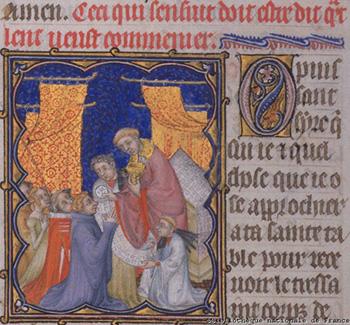 amen. Ceci qui sensuit doit estre dit
lent veust commenier:
O puis
sant
sire
Qui ie ⁊ quel
chose que ie o
se approchier
a ta sainte ta
ble pour rece
voir le tressa
int corps de
©Bibliothèque nationale de France